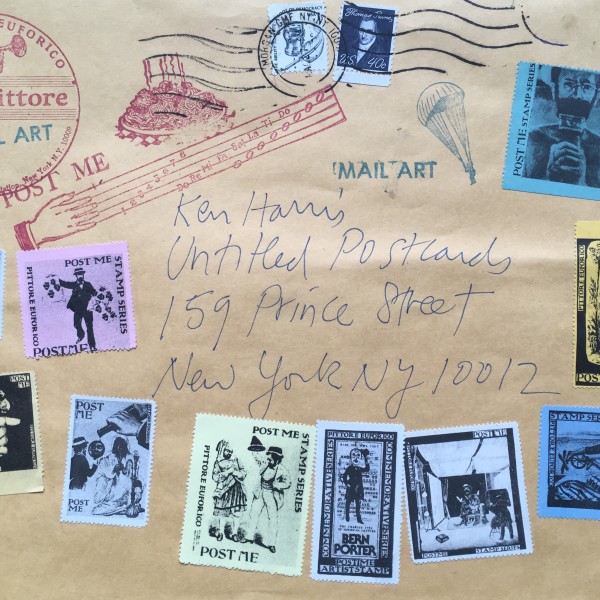 EUFORICO
ittore
L ART
New York N.Y. 1000
POST ME
1 2 3 4 5 6 7 8
Do Re Mi Fa Sol La Ti Do
MORGAN GMF NY NY
Thomas Paine
U.S. 40c
MAIL ART
POST ME STAMP SERIES
Ken Harris
Untitled Postcards
159 Prince Street
New York NY 10012
POST ME
STAMP SERIES
PITTORE EUFORICO
POST ME
PITTORE EUFORICO
POST
POST
POST ME
POST ME
POST ME
STAMP SERIES
PITTORE EUFORICO
POST ME
PITTORE EUFORICO
COMMEMORATIVE SERIES
COMMEMORATIVE SERIES
BERN PORTER
POSTME
ARTISTSTAMP
POSTME
POSTME
STAMP SERIES
STAMP SERIES
PITTORE EUFORICO